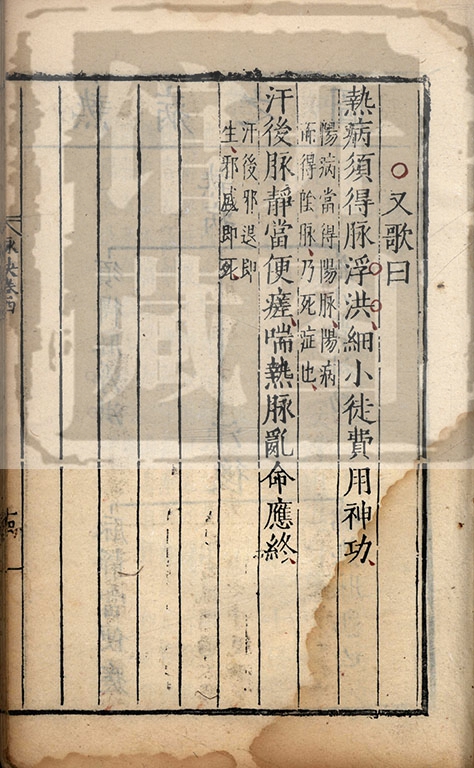 又歌曰
熱病須得脉浮洪細小徒費用神功
陽病當得陽脉陽病
而得陰脉乃死症也
汗後脉靜當便瘥喘熱脉亂命應終
汗後邪退即
生邪盛即死
脉訣卷四